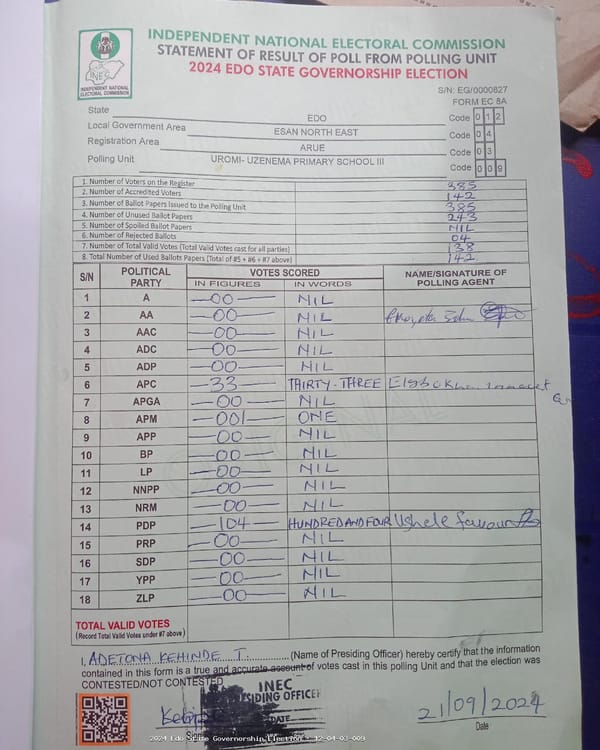 INDEPENDENT NATIONAL ELECTORAL COMMISSION
STATEMENT OF RESULT OF POLL FROM POLLING UNIT
2024 EDO STATE GOVERNORSHIP ELECTION
INEC
INDEPENDENT NATIONAL
ELECTORAL COMMISSION
S/N: EG/0000827
FORM EC 8A
State EDO Code 0 1 2
Local Government Area ESAN NORTH EAST Code 0 4
Registration Area ARUE Code 0 3
Polling Unit UROMI- UZENEMA PRIMARY SCHOOL III Code 0 0 9
1. Number of Voters on the Register 385
2. Number of Accredited Voters 142
3. Number of Ballot Papers Issued to the Polling Unit 385
4. Number of Unused Ballot Papers 243
5. Number of Spoiled Ballot Papers NIL
6. Number of Rejected Ballots 04
7. Number of Total Valid Votes (Total Valid Votes cast for all parties) 138
8. Total Number of Used Ballots Papers (Total of #5 + #6 + #7 above) 142
S/N POLITICAL PARTY VOTES SCORED NAME/SIGNATURE OF POLLING AGENT
IN FIGURES IN WORDS
1 A 00 NIL
2 AA 00 NIL
3 AAC 00 NIL
4 ADC 00 NIL
5 ADP 00 NIL
6 APC 33 THIRTY-THREE
7 APGA 00 NIL
8 APM 001 ONE
9 APP 00 NIL
10 BP 00 NIL
11 LP 00 NIL
12 NNPP 00 NIL
13 NRM 00 NIL
14 PDP 104 HUNDRED AND FOUR Ughele favour
15 PRP 00 NIL
16 SDP 00 NIL
17 YPP 00 NIL
18 ZLP 00 NIL
TOTAL VALID VOTES
(Record Total Valid Votes under #7 above)
I, ADETONA KEHINDE T. (Name of Presiding Officer) hereby certify that the information
contained in this form is a true and accurate account of votes cast in this polling Unit and that the election was
CONTESTED/NOT CONTESTED
INEC
PRESIDING OFFICER
DATE
21/09/2024
Date
2024 Edo State Governorship Election - 12-04-03-009